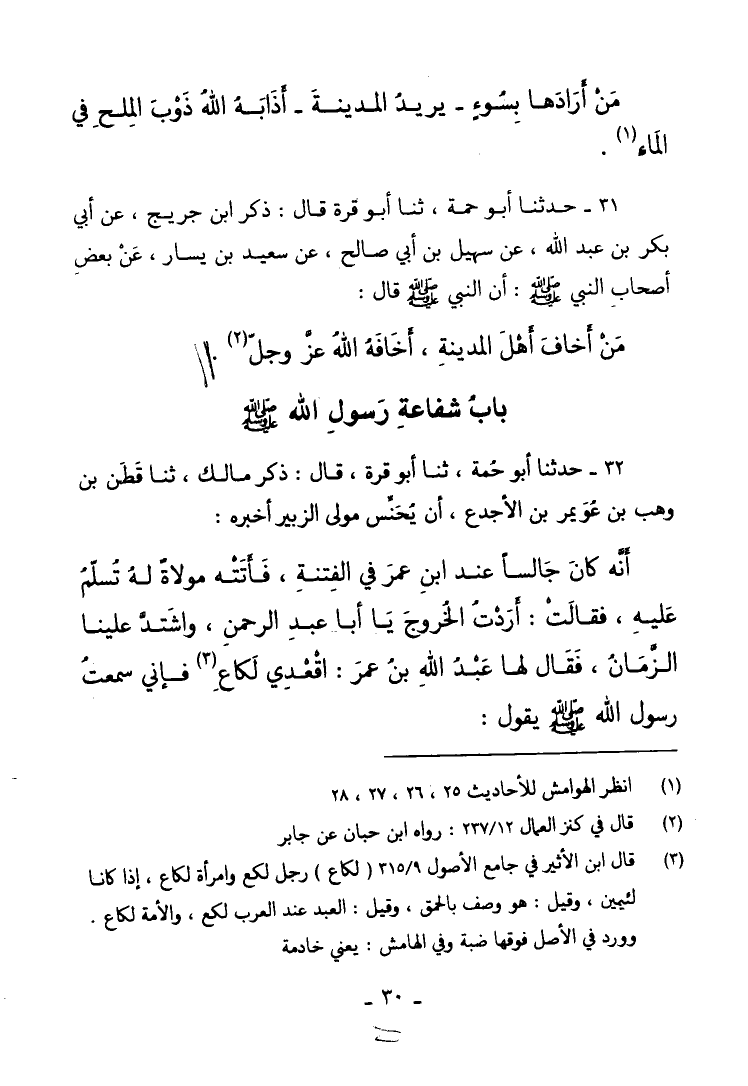 مَنْ أَرَادَهـا بِسُوءٍ ـ يريـدُ المـدينـةَ ـ أَذَابَـهُ اللهُ ذَوْبَ المِلـحِ في
المَاء(١) .
٣١ ـ حـدثنـا أبـو حمة ، ثنـا أبـو قرة قال : ذكر ابن جريـج ، عن أبي
بكر بن عبد الله ، عن سهيل بن أبي صالح ، عن سعيد بن يسار ، عَنْ بعضِ
أصحابِ النبي ﷺ : أن النبي ﷺ قال :
مَنْ أخافَ أَهْلَ المدينةِ ، أَخَافَهُ اللهُ عزَّ وجلّ(٢)
بابُ شفاعةِ رَسولِ الله ﷺ
٣٢ ـ حدثنـا أبو حُمة ، ثنـا أبو قرة ، قال : ذكر مـالـك ، ثنـا قَطَن بن
وهب بن عُوَيمر بن الأجدع ، أن يُحَنِّس مولى الزبير أخبره :
أَنَّه كانَ جَالساً عنـد ابنِ عمرَ في الفِتنـةِ ، فَـأَتَتْـه مولاةٌ لـهُ تُسلّمُ
عَليـهِ ، فقـالَتْ : أَرَدْتُ الخُروجَ يَـا أبـا عبـدِ الرحمنِ ، واشتَـدَّ علينـا
الـزَّمَـانُ ، فَقَـال لهـا عَبْـدُ اللهِ بنُ عمرَ : اقْعُـدِي لَكاعِ(٣) فـإني سمعتُ
رسول الله ﷺ يقول :
(١) انظر الهوامش للأحاديث ٢٥ ، ٢٦ ، ٢٧ ، ٢٨
(٢) قال في كنز العمال ٢٣٧/١٢ : رواه ابن حبان عن جابر
(٣) قال ابن الأثير في جامع الأصول ٣١٥/٩ ( لكاع ) رجل لكع وامرأة لكاع ، إذا كانـا
لئيمين ، وقيل : هو وصف بالحمق ، وقيل : العبد عند العرب لكع ، والأمة لكاع .
وورد في الأصل فوقها ضبة وفي الهامش : يعني خادمة
ـ ٣٠ ـ